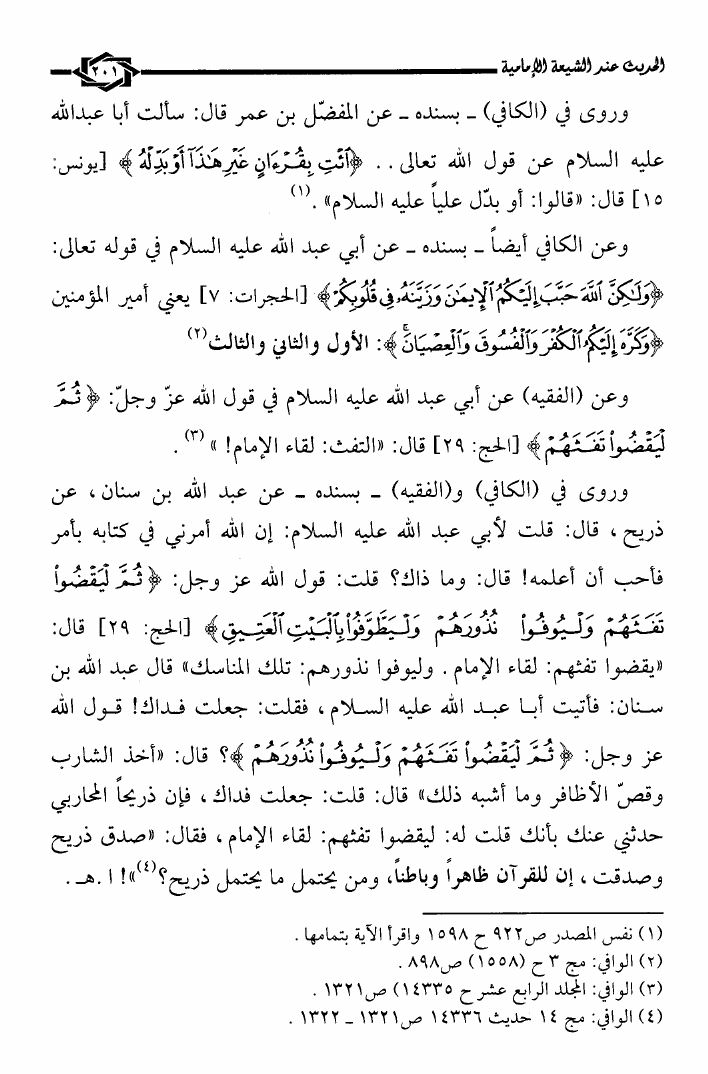 الحديث عند الشيعة الإمامية
٢٠١
وروى في (الكافي) ـ بسنده ـ عن المفضّل بن عمر قال: سألت أبا عبدالله
عليه السلام عن قول الله تعالى . . ﴿ٱئْتِ بِقُرْءَانٍ غَيْرِ هَٰذَآ أَوْ بَدِّلْهُ﴾ [يونس:
١٥] قال: «قالوا: أو بدّل علياً عليه السلام» .(١)
وعن الكافي أيضاً ـ بسنده ـ عن أبي عبد الله عليه السلام في قوله تعالى:
﴿وَلَٰكِنَّ ٱللَّهَ حَبَّبَ إِلَيْكُمُ ٱلْإِيمَٰنَ وَزَيَّنَهُۥ فِى قُلُوبِكُمْ﴾ [الحجرات: ٧] يعني أمير المؤمنين
﴿وَكَرَّهَ إِلَيْكُمُ ٱلْكُفْرَ وَٱلْفُسُوقَ وَٱلْعِصْيَانَ ۚ﴾: الأول والثاني والثالث(٢)
وعن (الفقيه) عن أبي عبد الله عليه السلام في قول الله عزّ وجلّ: ﴿ثُمَّ
لْيَقْضُوا۟ تَفَثَهُمْ﴾ [الحج: ٢٩] قال: «التفث: لقاء الإمام! » (٣) .
وروى في (الكافي) و(الفقيه) ـ بسنده ـ عن عبد الله بن سنان، عن
ذريح، قال: قلت لأبي عبد الله عليه السلام: إن الله أمرني في كتابه بأمر
فأحب أن أعلمه! قال: وما ذاك؟ قلت: قول الله عز وجل: ﴿ثُمَّ لْيَقْضُوا۟
تَفَثَهُمْ وَلْيُوفُوا۟ نُذُورَهُمْ وَلْيَطَّوَّفُوا۟ بِٱلْبَيْتِ ٱلْعَتِيقِ﴾ [الحج: ٢٩] قال:
«يقضوا تفثهم: لقاء الإمام . وليوفوا نذورهم: تلك المناسك» قال عبد الله بن
سنان: فأتيت أبا عبد الله عليه السلام، فقلت: جعلت فداك! قول الله
عز وجل: ﴿ثُمَّ لْيَقْضُوا۟ تَفَثَهُمْ وَلْيُوفُوا۟ نُذُورَهُمْ﴾؟ قال: «أخذ الشارب
وقصّ الأظافر وما أشبه ذلك» قال: قلت: جعلت فداك، فإن ذريحاً المحاربي
حدثني عنك بأنك قلت له: ليقضوا تفثهم: لقاء الإمام، فقال: «صدق ذريح
وصدقت، إن للقرآن ظاهراً وباطناً، ومن يحتمل ما يحتمل ذريح؟(٤)»! ا.هـ .
(١) نفس المصدر ص٩٢٢ ح ١٥٩٨ واقرأ الآية بتمامها .
(٢) الوافي: مج ٣ ح (١٥٥٨) ص٨٩٨ .
(٣) الوافي: المجلد الرابع عشر ح ١٤٣٣٥) ص١٣٢١ .
(٤) الوافي: مج ١٤ حديث ١٤٣٣٦ ص١٣٢١ ـ ١٣٢٢ .